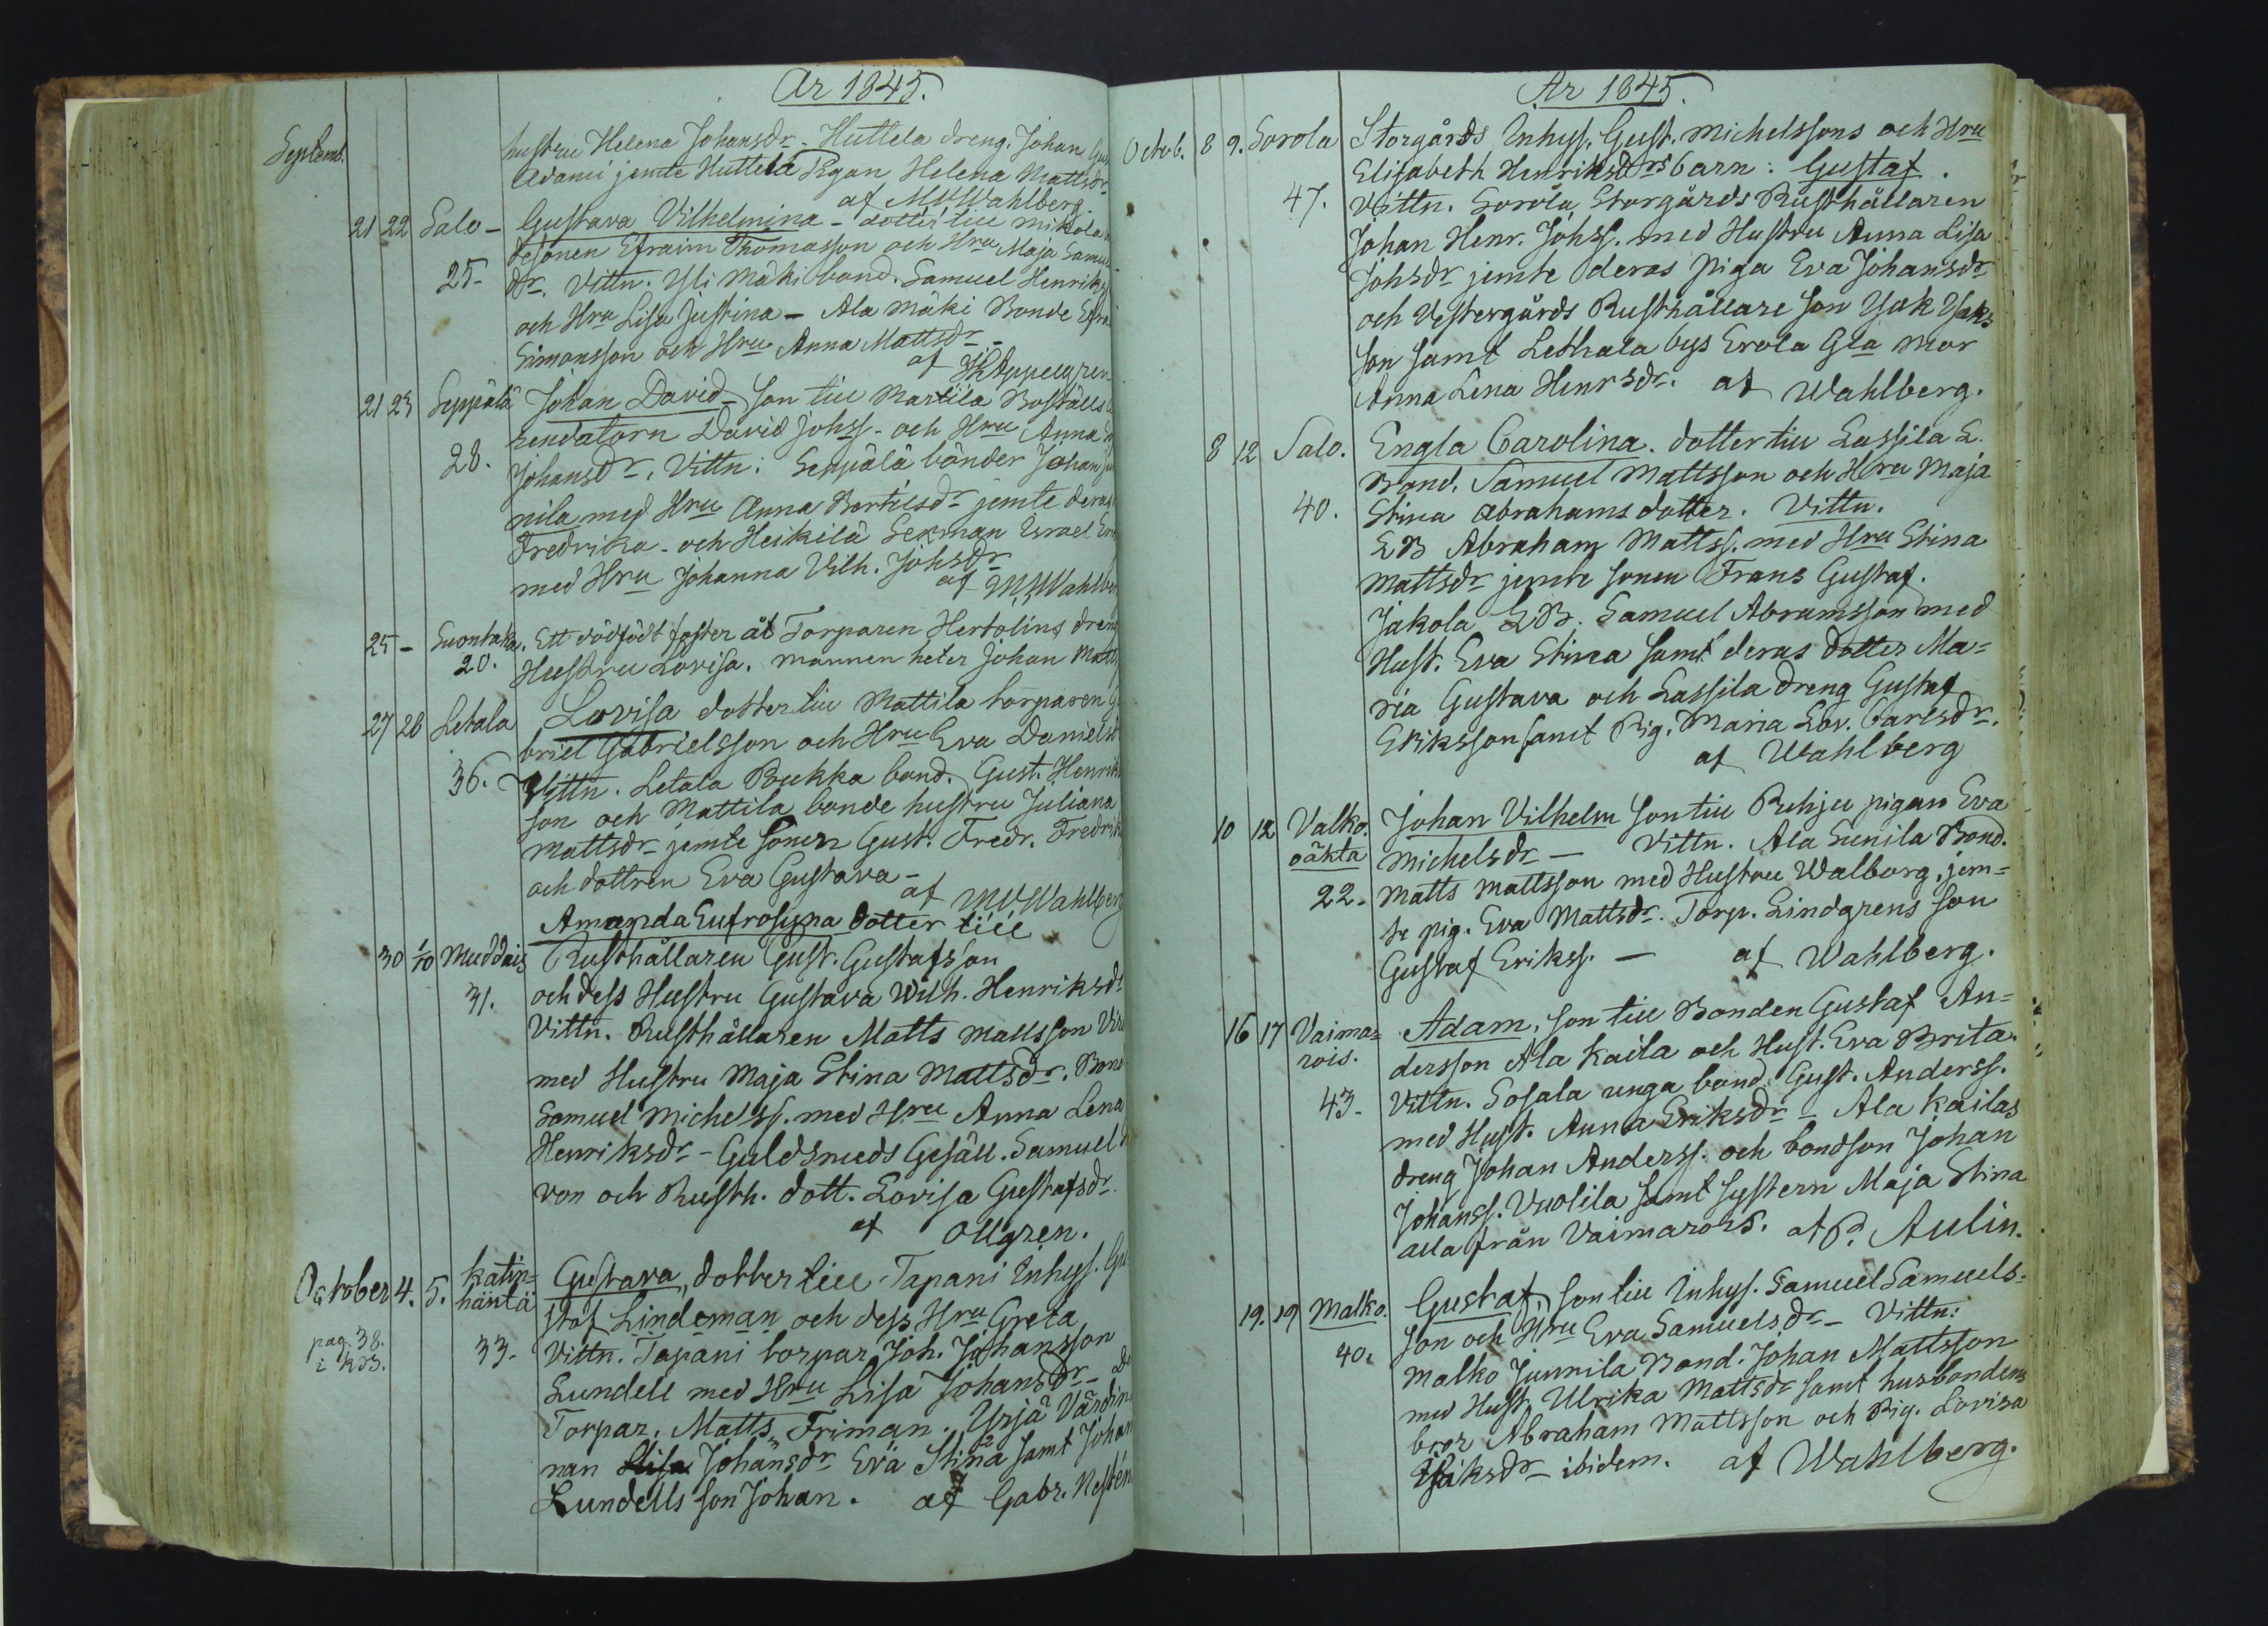 År 1845.
Septemb.
hustru Helena Johansdr - Huttela dreng. Johan
Adami jemte Huttela Pigan Helena Mattsdr
af MWWahlberg.
21 22 Salo - Gustava Vilhelmina - dotter till Mikola
desonen Efraim Thomasson och Hru Maja Samu
25- dr. Vittn. Yli Mäki bond. Samuel Henriks
och Hru Lisa Justina - Ala Mäki Bonde
Simonsson och Hru Anna Mattsdr -
af Appelgren
21 23 Seppälä Johan David - son till Martila Boställs
rendatorn David Johss - och Hru Anna
28. Johansdr. Vittn: Seppälä bönder Johan
nila med Hru Anna Bertilsdr - jemte deras
Fredrika - och Heikilä Sexman Israel
med Hru Johanna Vilh. Johsdr
af MWWahlber
25 - Suontaka. Ett dödfödt foster åt Torparen Hertolins dreng
20. Hustru Lovisa. mannen heter Johan Matts
27 28 Letala Lovisa dotter till Mattila torparen
briel Gabrielsson och Hru Eva Daniels
36. Vittn. Letala Pukka bond. Gust. Henriks
son och Mattila bonde hustru Juliana
Mattsdr - jemte sönen Gust. Fredr. Fredrik
och dottren Eva Gustava -
af MWWahlberg
Amanda Eufrosyna dotter till
30 1/10 Muddais Rusthållaren Gust. Gustafsson
31. och dess Hustru Gustava Wilh. Henriksdr
Vittn. Rusthållaren Matts Mattsson
med Hustru Maja Stina Mattsdr. Bond
Samuel Michelss. med Hru Anna Lena
Henriksdr - Guldsmeds Gesäll. Samuel
von och Rusth. dott. Lovisa Gustafsdr.
af Ollgren.
October 4. 5. Katin= Gustava, dotter till Tapani Inhys.
häntä staf Lindeman och dess Hru Greta
pag. 38. 33- Vittn. Tapani torpar Joh. Johansson
Lundell med Hru Lisa Johansdr -
Torpar. Matts Friman. Yrjä Värdin
nan Johansdr Eva Stina samt Johan
Lundells son Johan. af Gabr. Nestén
År 1845.
Octob. 8 9. Sorola Storgårds Inhys. Gust. Michelssons och Hru
Elisabeth Henriksdrs barn: Gustaf.
47. Vittn. Sorola Storgårds Rusthållaren
Johan Henr. Johss. med Hustru Anna Lisa
Johsdr jemte deras piga Eva Johansdr
och Vestergårds Rusthållare son Isak Isaks
son samt Lethala bys Erola Gla Mor
Anna Lena Henrsdr. af Wahlberg.
8 12 Salo. Engla Carolina. dotter till Lassila L.
Bond. Samuel Mattsson och Hru Maja
40. Stina Abrahams dotter. Vittn.
LB Abraham Mattss. med Hru Stina
Mattsdr jemte sonen Frans Gustaf.
Jakola LB. Samuel Abramsson med
Hust. Eva Stina samt deras dotter Ma=
ria Gustava och Lassila dreng Gustaf
Eriksson samt Pig. Maria Lov. Carlsdr.
af Wahlberg
10 12 Valko. Johan Vilhelm son till Ruhju pigan Eva
oäkta Michelsdr - Vittn. Ala Sunila Bond.
22. Matts Mattsson med Hustru Walborg, jem=
te pig. Eva Mattsdr. Torp. Lindgrens son
Gustaf Erikss. - af Wahlberg.
16 17 Vaima= Adam, son till Bonden Gustaf An=
rois. dersson Ala Kaila och Hust. Eva Brita.
43- Vittn. Sosala unga bond. Gust. Anderss.
med Hust. Anna Eriksdr - Ala Kailas
dreng Johan Anderss. och bondson Johan
Johanss. Vuolila samt systern Maja Stina
alla från Vaimarois. af Aulin.
19. 19 Malko. Gustaf, son till Inhys. Samuel Samuels=
son och Hru Eva Samuelsdr - Vittn:
40. Malko Junnila Bond. Johan Mattsson
med Hust. Ulrika Mattsdr samt husbondens
bror Abraham Mattsson och Pig. Lovisa
Isaksdr - ibidem. af Wahlberg.